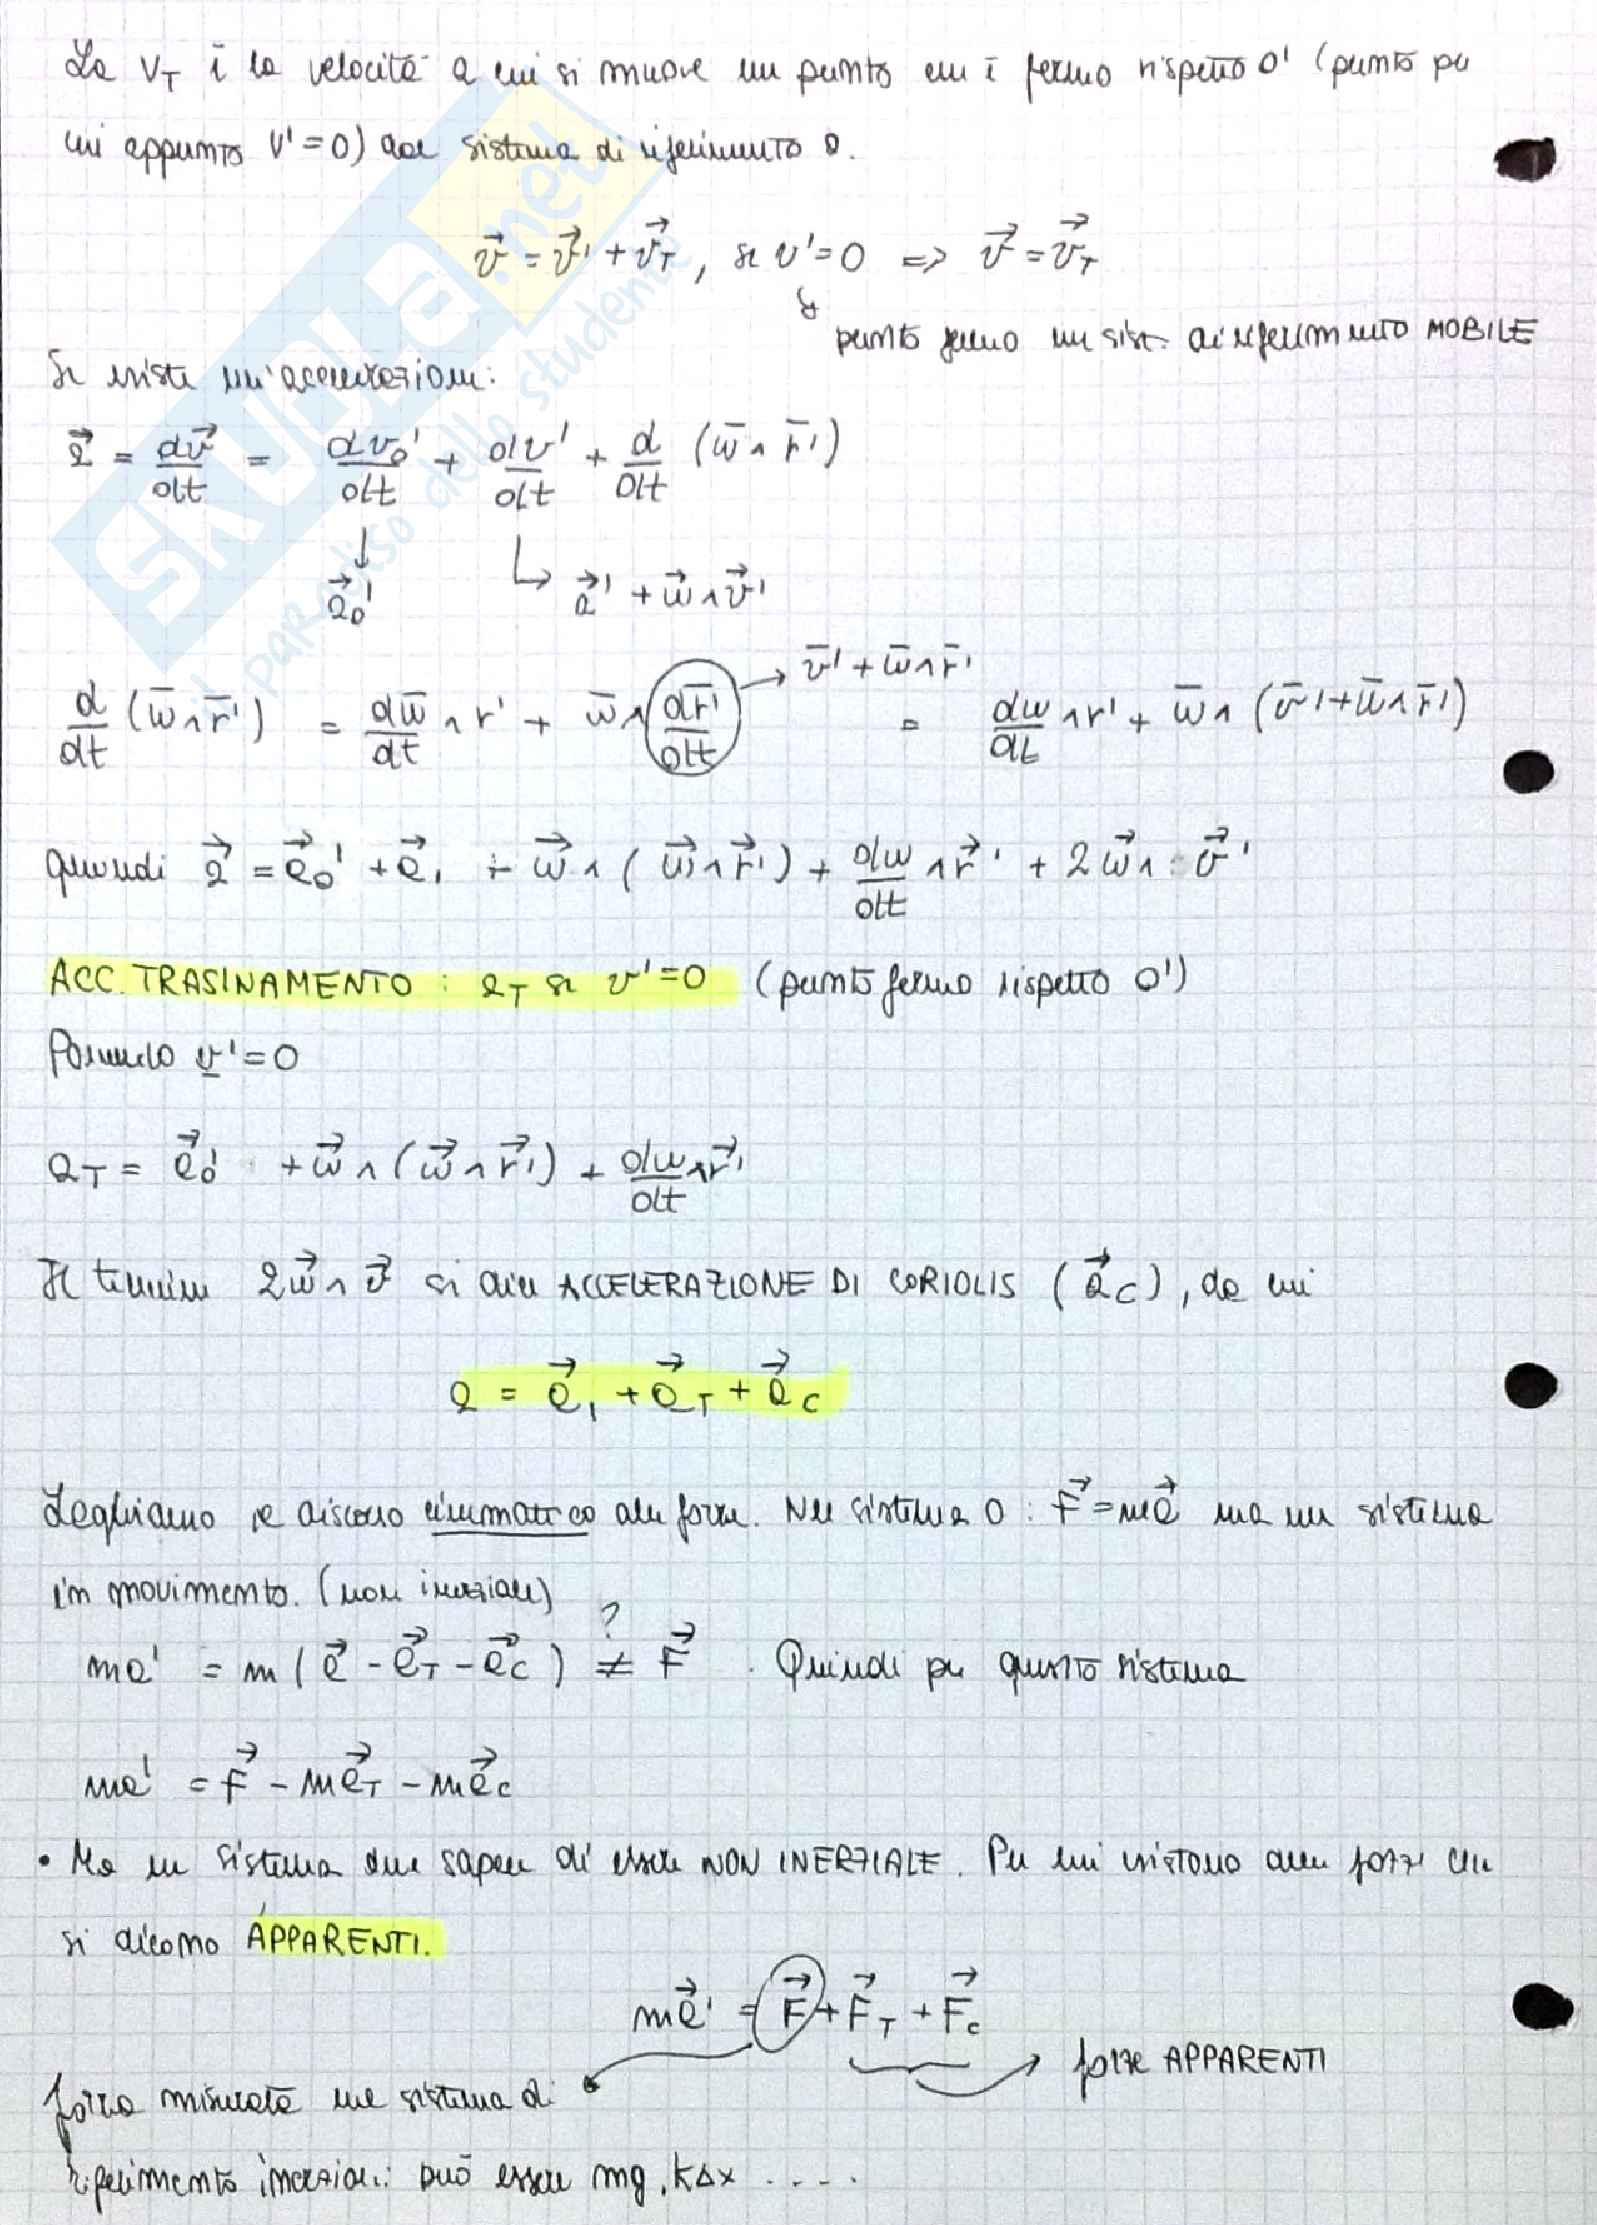 La V_T è la velocità a cui si muove un punto che è fermo rispetto O' (punto per
cui appunto V'=0) dal sistema di riferimento O.
v⃗ = v⃗' + v⃗_T , se v'=0 ⇒ v⃗ = v⃗_T
punto fermo nel sist. di riferimento MOBILE
Se esiste un'accelerazione:
a⃗ = dv⃗/dt = dv₀'/dt + dv'/dt + d/dt (ω̄ ∧ r̄')
a⃗₀' a⃗' + ω⃗ ∧ v⃗'
v̄' + ω̄ ∧ r̄'
d/dt (ω̄ ∧ r̄') = dω̄/dt ∧ r' + ω̄ ∧ dr̄'/dt = dω/dt ∧ r' + ω̄ ∧ (v̄' + ω̄ ∧ r̄')
quindi a⃗ = a⃗₀' + a⃗' + ω⃗ ∧ (ω⃗ ∧ r⃗') + dω/dt ∧ r⃗' + 2ω⃗ ∧ v⃗'
ACC. TRASINAMENTO : a_T se v'=0 (punto fermo rispetto O')
Ponendo v'=0
a_T = a⃗₀' + ω⃗ ∧ (ω⃗ ∧ r⃗') + dω/dt ∧ r⃗'
Il termine 2ω⃗ ∧ v⃗ si dice ACCELERAZIONE DI CORIOLIS (a⃗_C), da cui
a = a⃗' + a⃗_T + a⃗_C
Leghiamo il discorso cinematico alle forze. Nel sistema O : F⃗ = ma⃗ ma nel sistema
in movimento. (non inerziale)
?
ma' = m (a⃗ - a⃗_T - a⃗_C) ≠ F⃗ . Quindi per questo sistema
ma' = F⃗ - ma⃗_T - ma⃗_C
• Ma il sistema deve sapere di essere NON INERZIALE. Per lui esistono delle forze che
si dicono APPARENTI.
ma⃗' = F⃗ + F⃗_T + F⃗_C
forze APPARENTI
forza misurata nel sistema di
riferimento inerziale: può essere mg, kΔx ....
SKUOLA.net
il paradiso dello studente